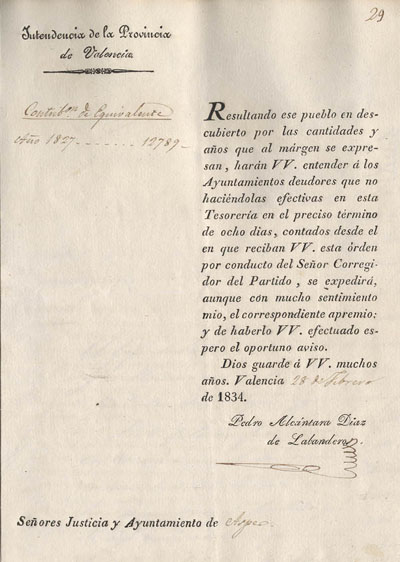 29
Intendencia de la Provincia
de Valencia.
Contub.on de Equivalente
Año 1827 - - - - - - - 12789 -
Resultando ese pueblo en des-
cubierto por las cantidades y
años que al márgen se expre-
san, harán VV. entender á los
Ayuntamientos deudores que no
haciéndolas efectivas en esta
Tesorería en el preciso término
de ocho dias, contados desde el
en que reciban VV. esta órden
por conducto del Señor Corregi-
dor del Partido, se expedirá,
aunque con mucho sentimiento
mio, el correspondiente apremio;
y de haberlo VV. efectuado es-
pero el oportuno aviso.
Dios guarde á VV. muchos
años. Valencia 28 de Febrero
de 1834.
Pedro Alcántara Diaz
de Labandero.
Señores Justicia y Ayuntamiento de Aspe